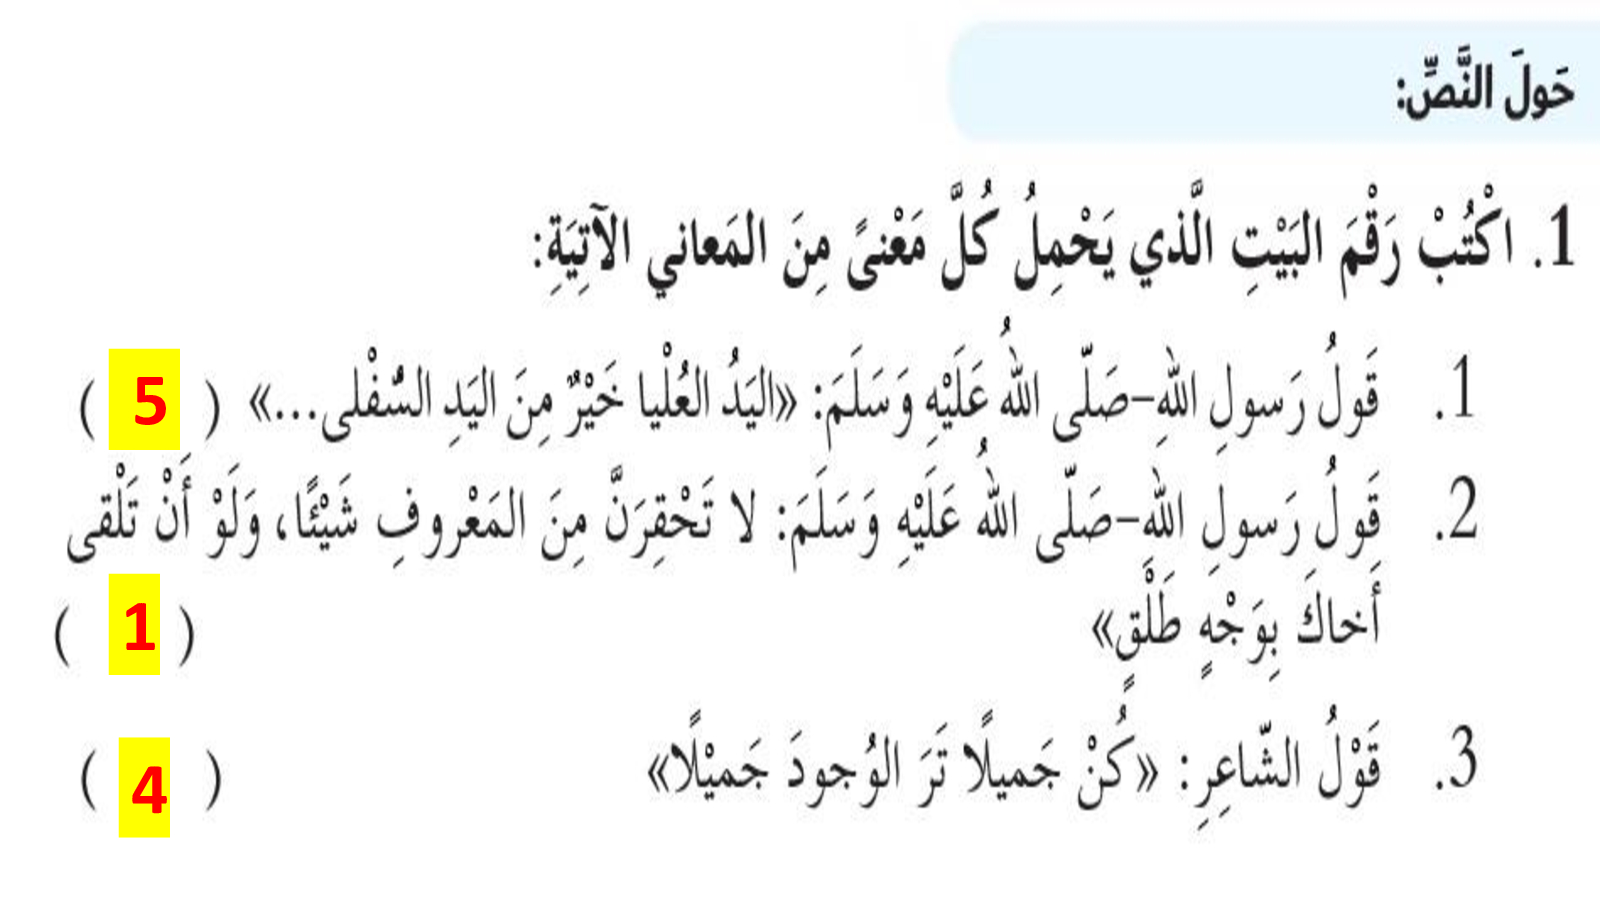 حَولَ النَّصِّ:
1. اكْتُبْ رَقْمَ البَيْتِ الَّذي يَحْمِلُ كُلَّ مَعْنىً مِنَ المَعاني الآتِيَةِ:
1. قَولُ رَسولِ اللهِ-صَلّى اللهُ عَلَيْهِ وَسَلَمَ: «اليَدُ العُلْيا خَيْرٌ مِنَ اليَدِ السُّفْلى...» ( 5 )
2. قَولُ رَسولِ اللهِ-صَلّى اللهُ عَلَيْهِ وَسَلَمَ: لا تَحْقِرَنَّ مِنَ المَعْروفِ شَيْئًا، وَلَوْ أَنْ تَلْقى
أَخاكَ بِوَجْهٍ طَلْقٍ» ( 1 )
3. قَوْلُ الشّاعِرِ: «كُنْ جَميلًا تَرَ الوُجودَ جَميْلًا» ( 4 )